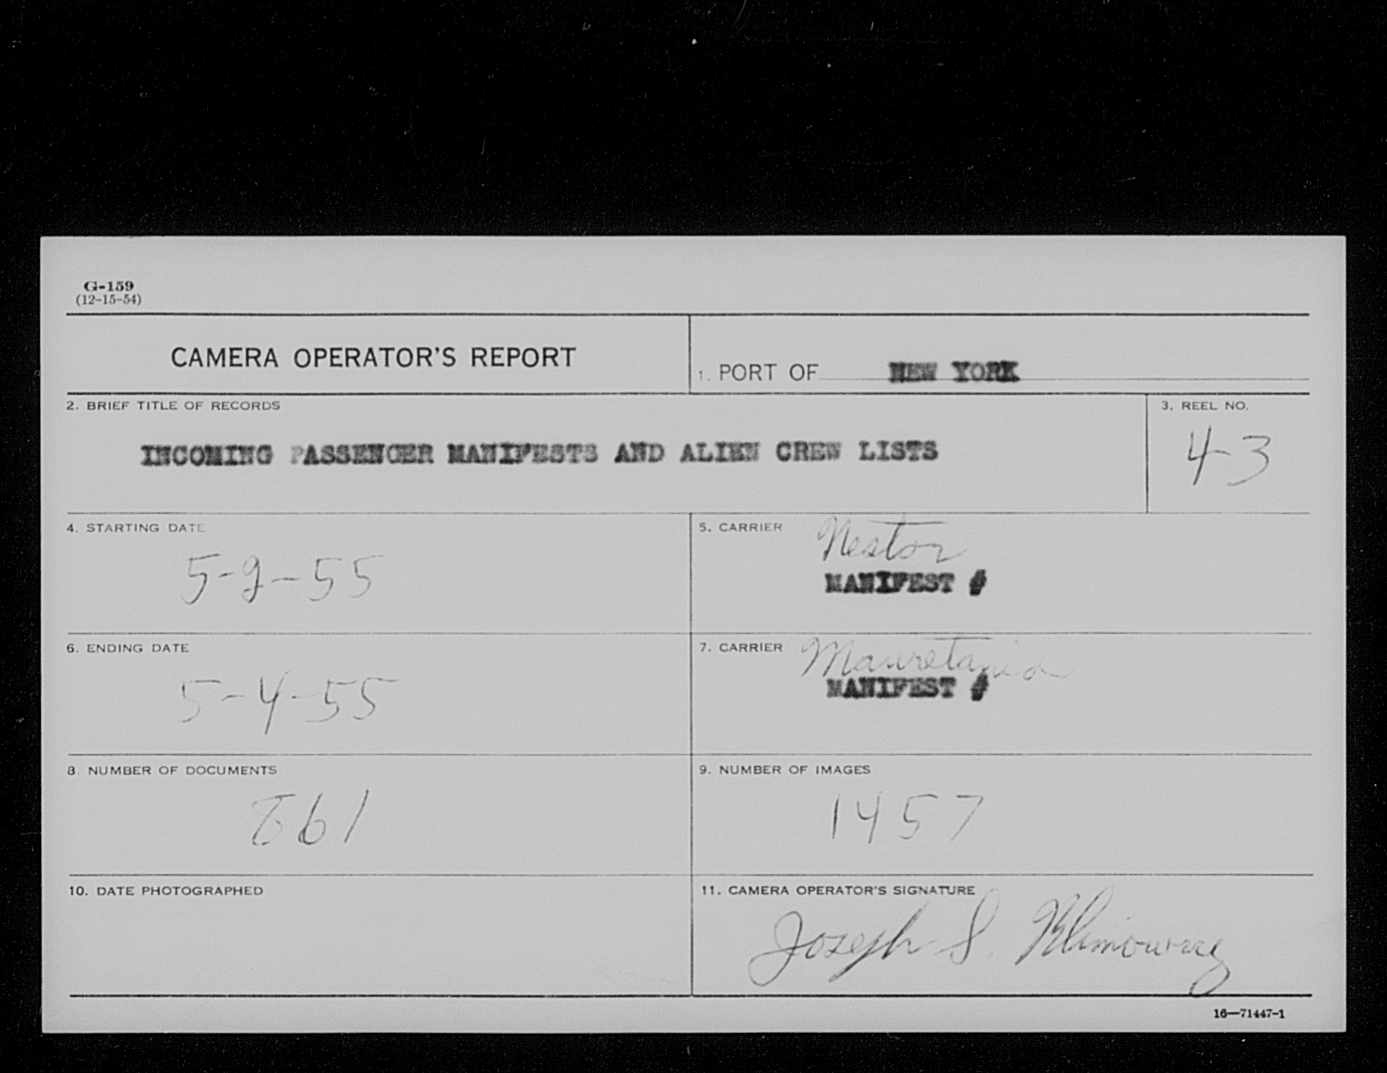 G-159
(12-15-54)
CAMERA OPERATOR'S REPORT
1. PORT OF NEW YORK
2. BRIEF TITLE OF RECORDS
INCOMING PASSENGER MANIFESTS AND ALIEN CREW LISTS
3. REEL NO.
43
4. STARTING DATE
5-2-55
5. CARRIER Nestor
MANIFEST #
6. ENDING DATE
5-4-55
7. CARRIER Mauretania
MANIFEST #
8. NUMBER OF DOCUMENTS
861
9. NUMBER OF IMAGES
1457
10. DATE PHOTOGRAPHED
11. CAMERA OPERATOR'S SIGNATURE
Joseph S.
16—71447-1